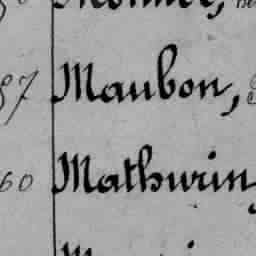 87 Maubon,
60 Mathurin,